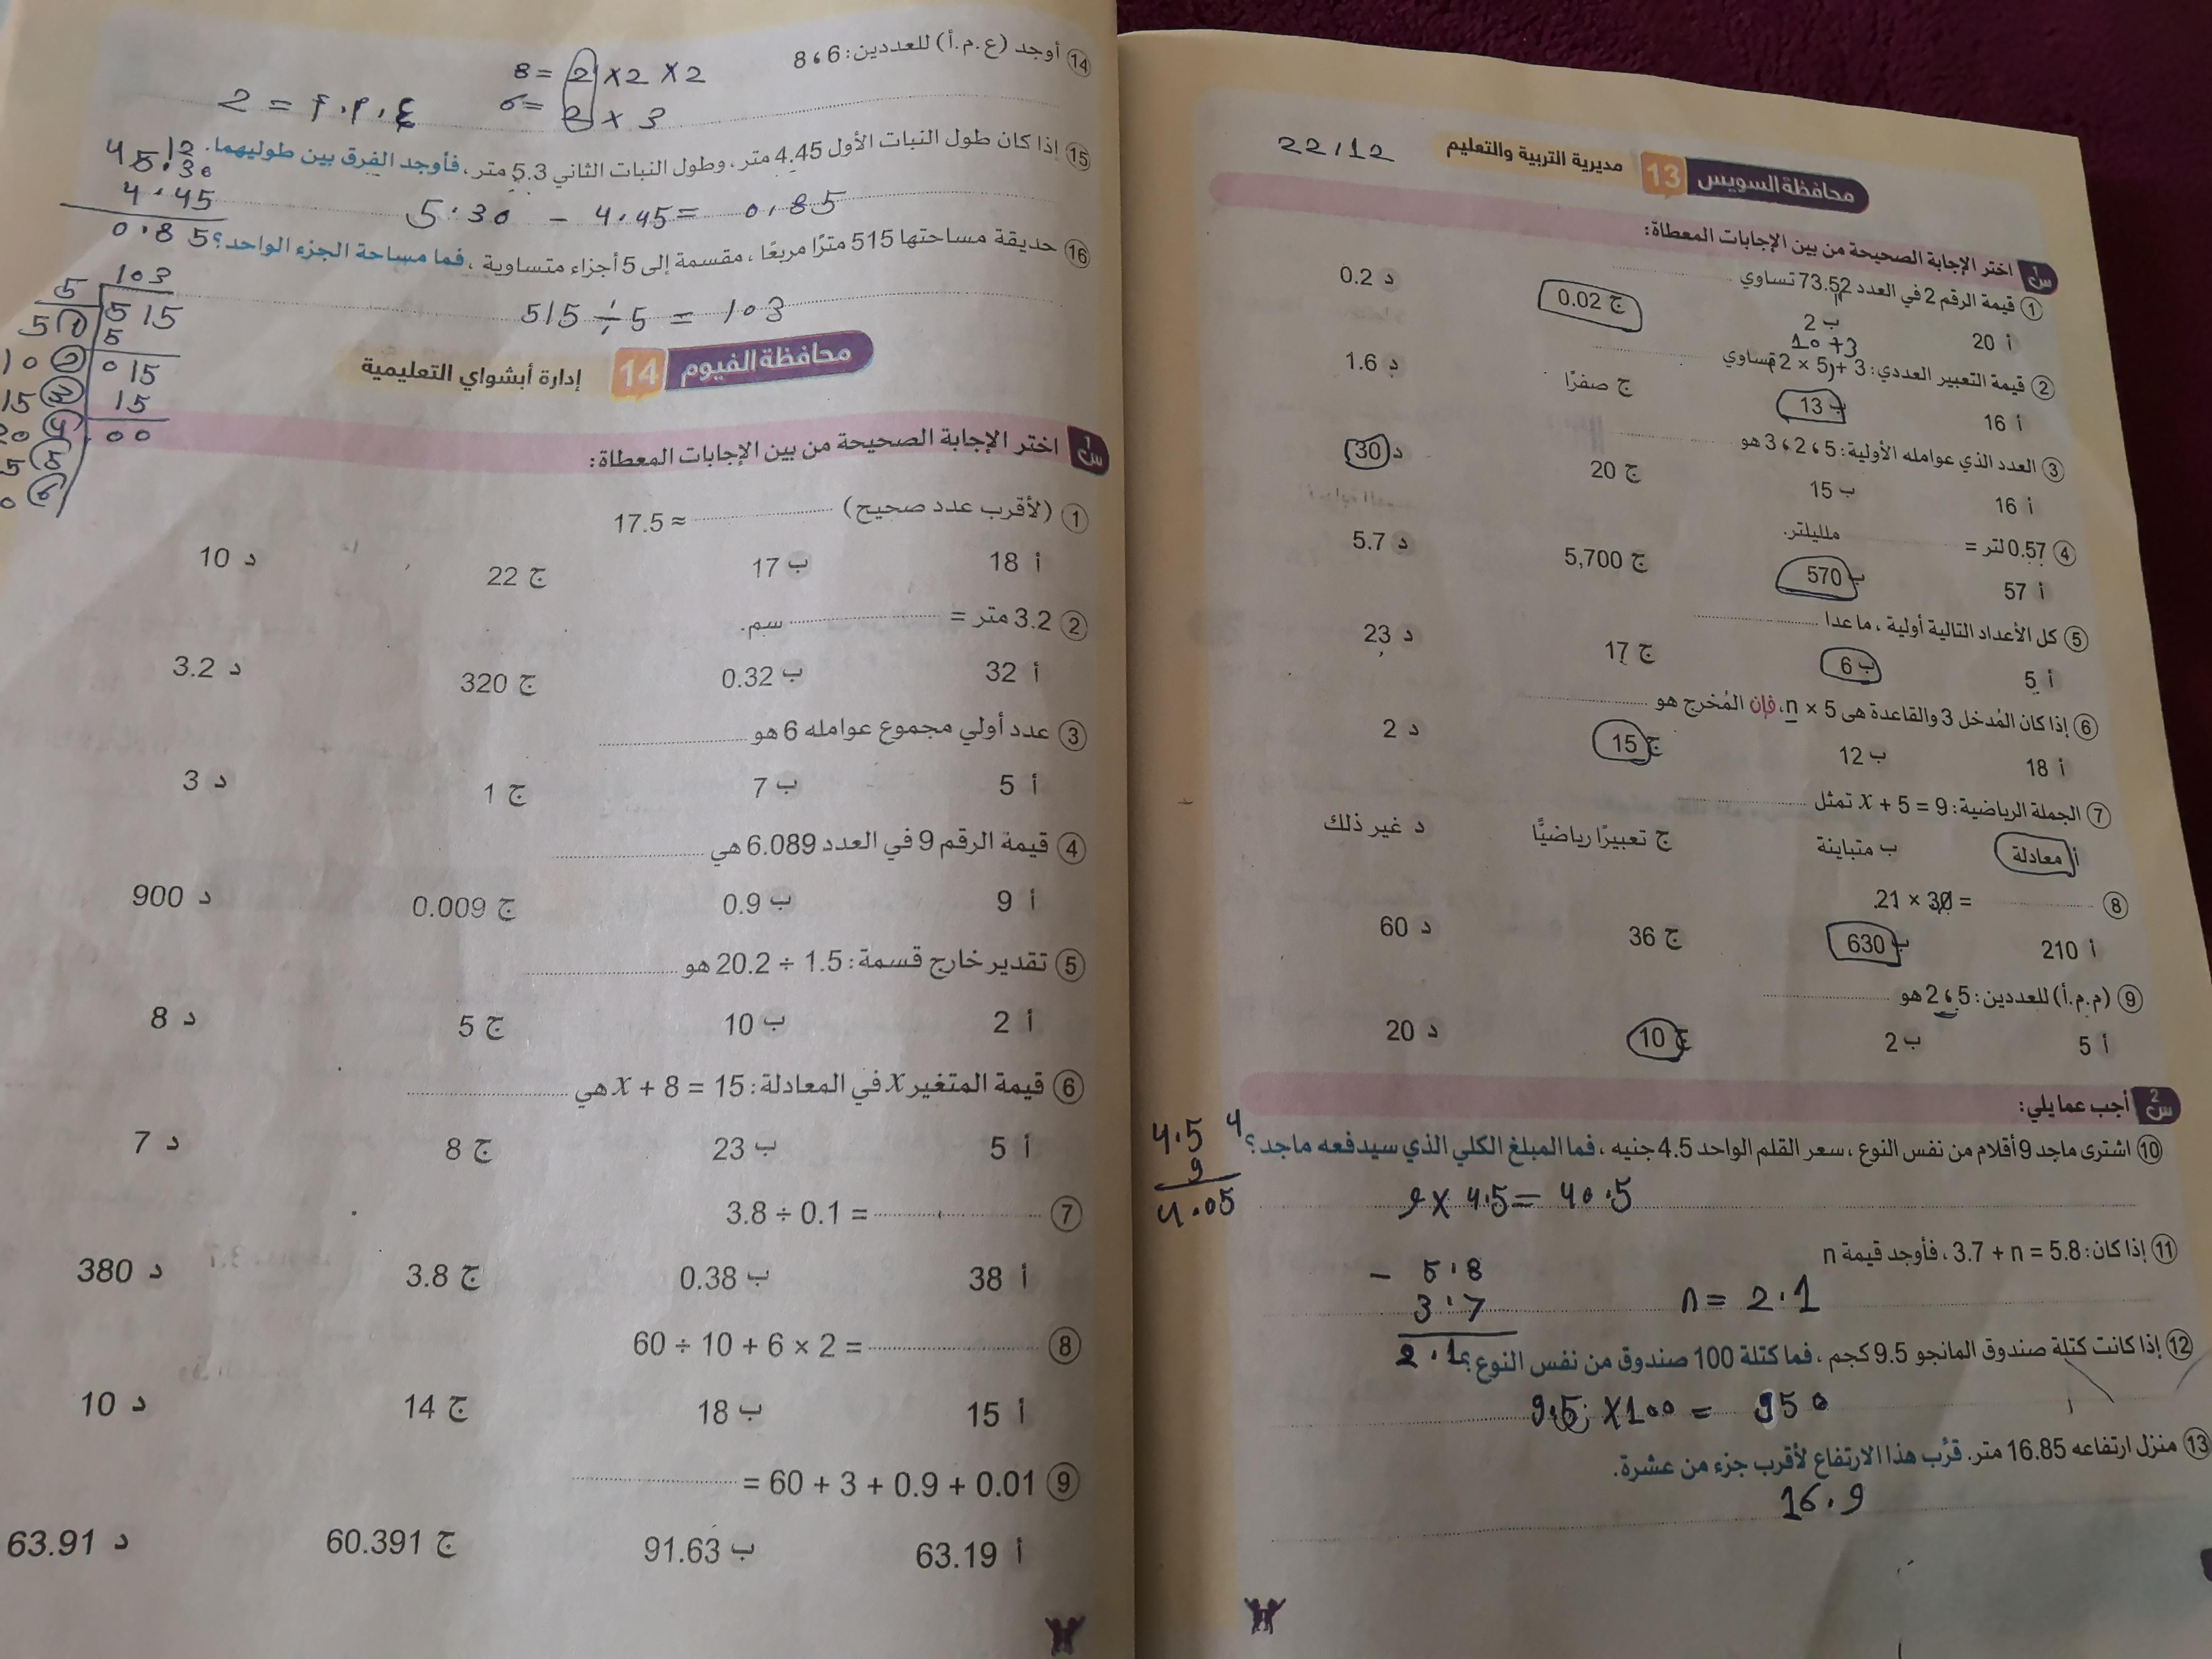 22/12
محافظة السويس 13 مديرية التربية والتعليم
س1 اختر الإجابة الصحيحة من بين الإجابات المعطاة:
1 قيمة الرقم 2 في العدد 73.52 تساوي
أ 20 ب 2 ج 0.02 د 0.2
10+3
2 قيمة التعبير العددي: 2 × 5 + 3 تساوي
أ 16 ب 13 ج صفرًا د 1.6
3 العدد الذي عوامله الأولية: 5 ، 2 ، 3 هو
أ 16 ب 15 ج 20 د 30
4 0.57 لتر = ملليلتر.
أ 57 ب 570 ج 5,700 د 5.7
5 كل الأعداد التالية أولية ، ما عدا
أ 5 ب 6 ج 17 د 23
6 إذا كان المُدخل 3 والقاعدة هى n × 5، فإن المُخرج هو
أ 18 ب 12 ج 15 د 2
7 الجملة الرياضية: x + 5 = 9 تمثل
أ معادلة ب متباينة ج تعبيرًا رياضيًّا د غير ذلك
8 21 × 30 =
أ 210 ب 630 ج 36 د 60
9 (م.م.أ) للعددين: 5 ، 2 هو
أ 5 ب 2 ج 10 د 20
س2 أجب عما يلي:
10 اشترى ماجد 9 أقلام من نفس النوع ، سعر القلم الواحد 4.5 جنيه ، فما المبلغ الكلي الذي سيدفعه ماجد؟
4.5 4
9
4.05
9 × 4.5 = 40.5
11 إذا كان: 3.7 + n = 5.8 ، فأوجد قيمة n
- 5.8
3.7
n = 2.1
2.1
12 إذا كانت كتلة صندوق المانجو 9.5 كجم ، فما كتلة 100 صندوق من نفس النوع؟
9.5 × 100 = 950
13 منزل ارتفاعه 16.85 متر. قرِّب هذا الارتفاع لأقرب جزء من عشرة.
16.9
14 أوجد (ع.م.أ) للعددين: 6 ، 8
8 = 2 × 2 × 2
6 = 2 × 3
ع.م.أ = 2
15 إذا كان طول النبات الأول 4.45 متر ، وطول النبات الثاني 5.3 متر ، فأوجد الفرق بين طوليهما.
4 12
5.30
4.45
0.85
5.30 - 4.45 = 0.85
16 حديقة مساحتها 515 مترًا مربعًا ، مقسمة إلى 5 أجزاء متساوية ، فما مساحة الجزء الواحد؟
515 ÷ 5 = 103
103
5 515
5
015
15
00
محافظة الفيوم 14 إدارة أبشواي التعليمية
س1 اختر الإجابة الصحيحة من بين الإجابات المعطاة:
1 (لأقرب عدد صحيح) 17.5 ≈
أ 18 ب 17 ج 22 د 10
2 3.2 متر = سم.
أ 32 ب 0.32 ج 320 د 3.2
3 عدد أولي مجموع عوامله 6 هو
أ 5 ب 7 ج 1 د 3
4 قيمة الرقم 9 في العدد 6.089 هي
أ 9 ب 0.9 ج 0.009 د 900
5 تقدير خارج قسمة: 20.2 ÷ 1.5 هو
أ 2 ب 10 ج 5 د 8
6 قيمة المتغير x في المعادلة: x + 8 = 15 هي
أ 5 ب 23 ج 8 د 7
7 3.8 ÷ 0.1 =
أ 38 ب 0.38 ج 3.8 د 380
8 60 ÷ 10 + 6 × 2 =
أ 15 ب 18 ج 14 د 10
9 60 + 3 + 0.9 + 0.01 =
أ 63.19 ب 91.63 ج 60.391 د 63.91